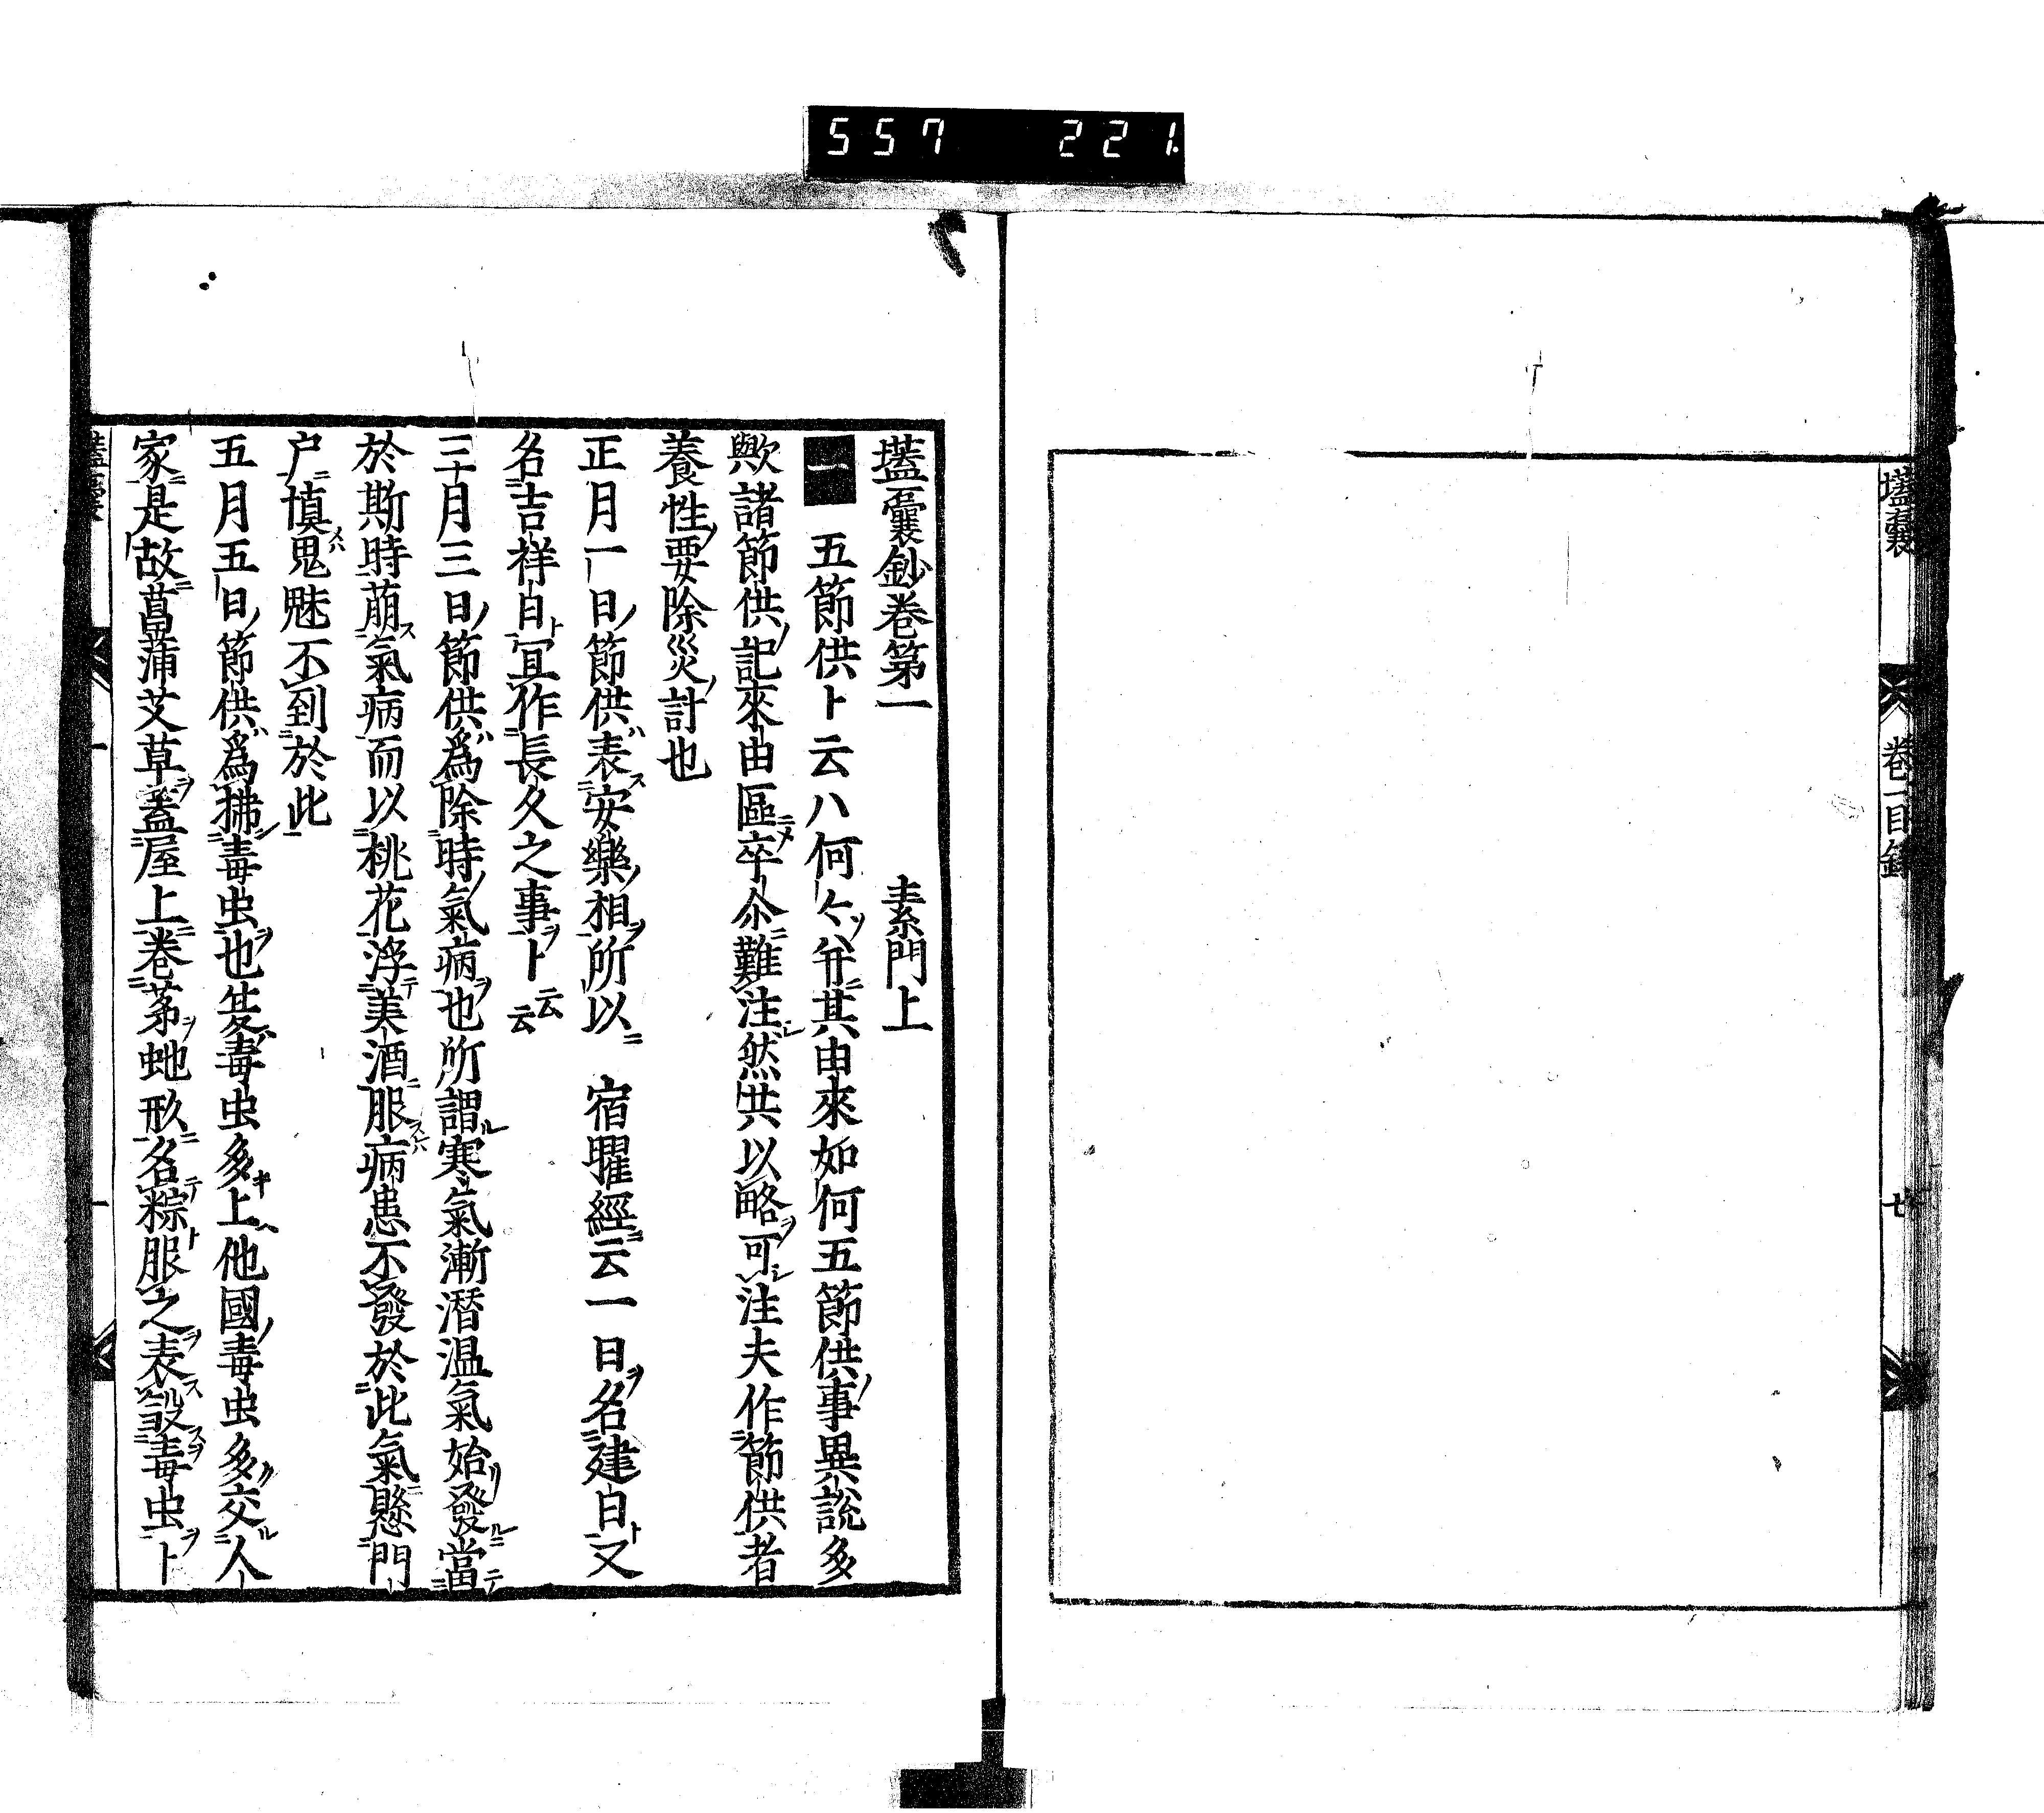 557 221
壒囊
卷一目錄
廿
壒囊鈔卷第一 素門上
一 五節供ト云ハ何々ソ并ニ其由來如何五節供ノ事異說多
歟諸節供ノ記來由區ニメ卒尒ニ難注シ然共以略ヲ可シ注夫作節供者
養性ノ要除災ノ計也
正月一日ノ節供ハ表ス安樂ノ相ヲ所以ニ 宿曜經ニ云一日ヲ名建日ト又
名吉祥日ト宜作長久之事ヲト云云
三月三日ノ節供ハ爲除時ノ氣病ヲ也所謂ル寒氣漸潛温氣始リ發ルニ當テ
於斯時萠ス氣病而以桃花浮テ美酒ニ服スレハ病患不發於此氣ニ懸門
户ニ慎鬼魅不到於此
五月五日ノ節供ハ爲拂ン毒虫ヲ也毒虫多キ上ヘ他國ノ毒虫多ク交ル人
家ニ是故ニ菖蒲艾草ヲ蓋屋上ニ卷茅ヲ虵形ニ名テ粽ト服之ヲ表ス殺スヲ毒虫ヲト